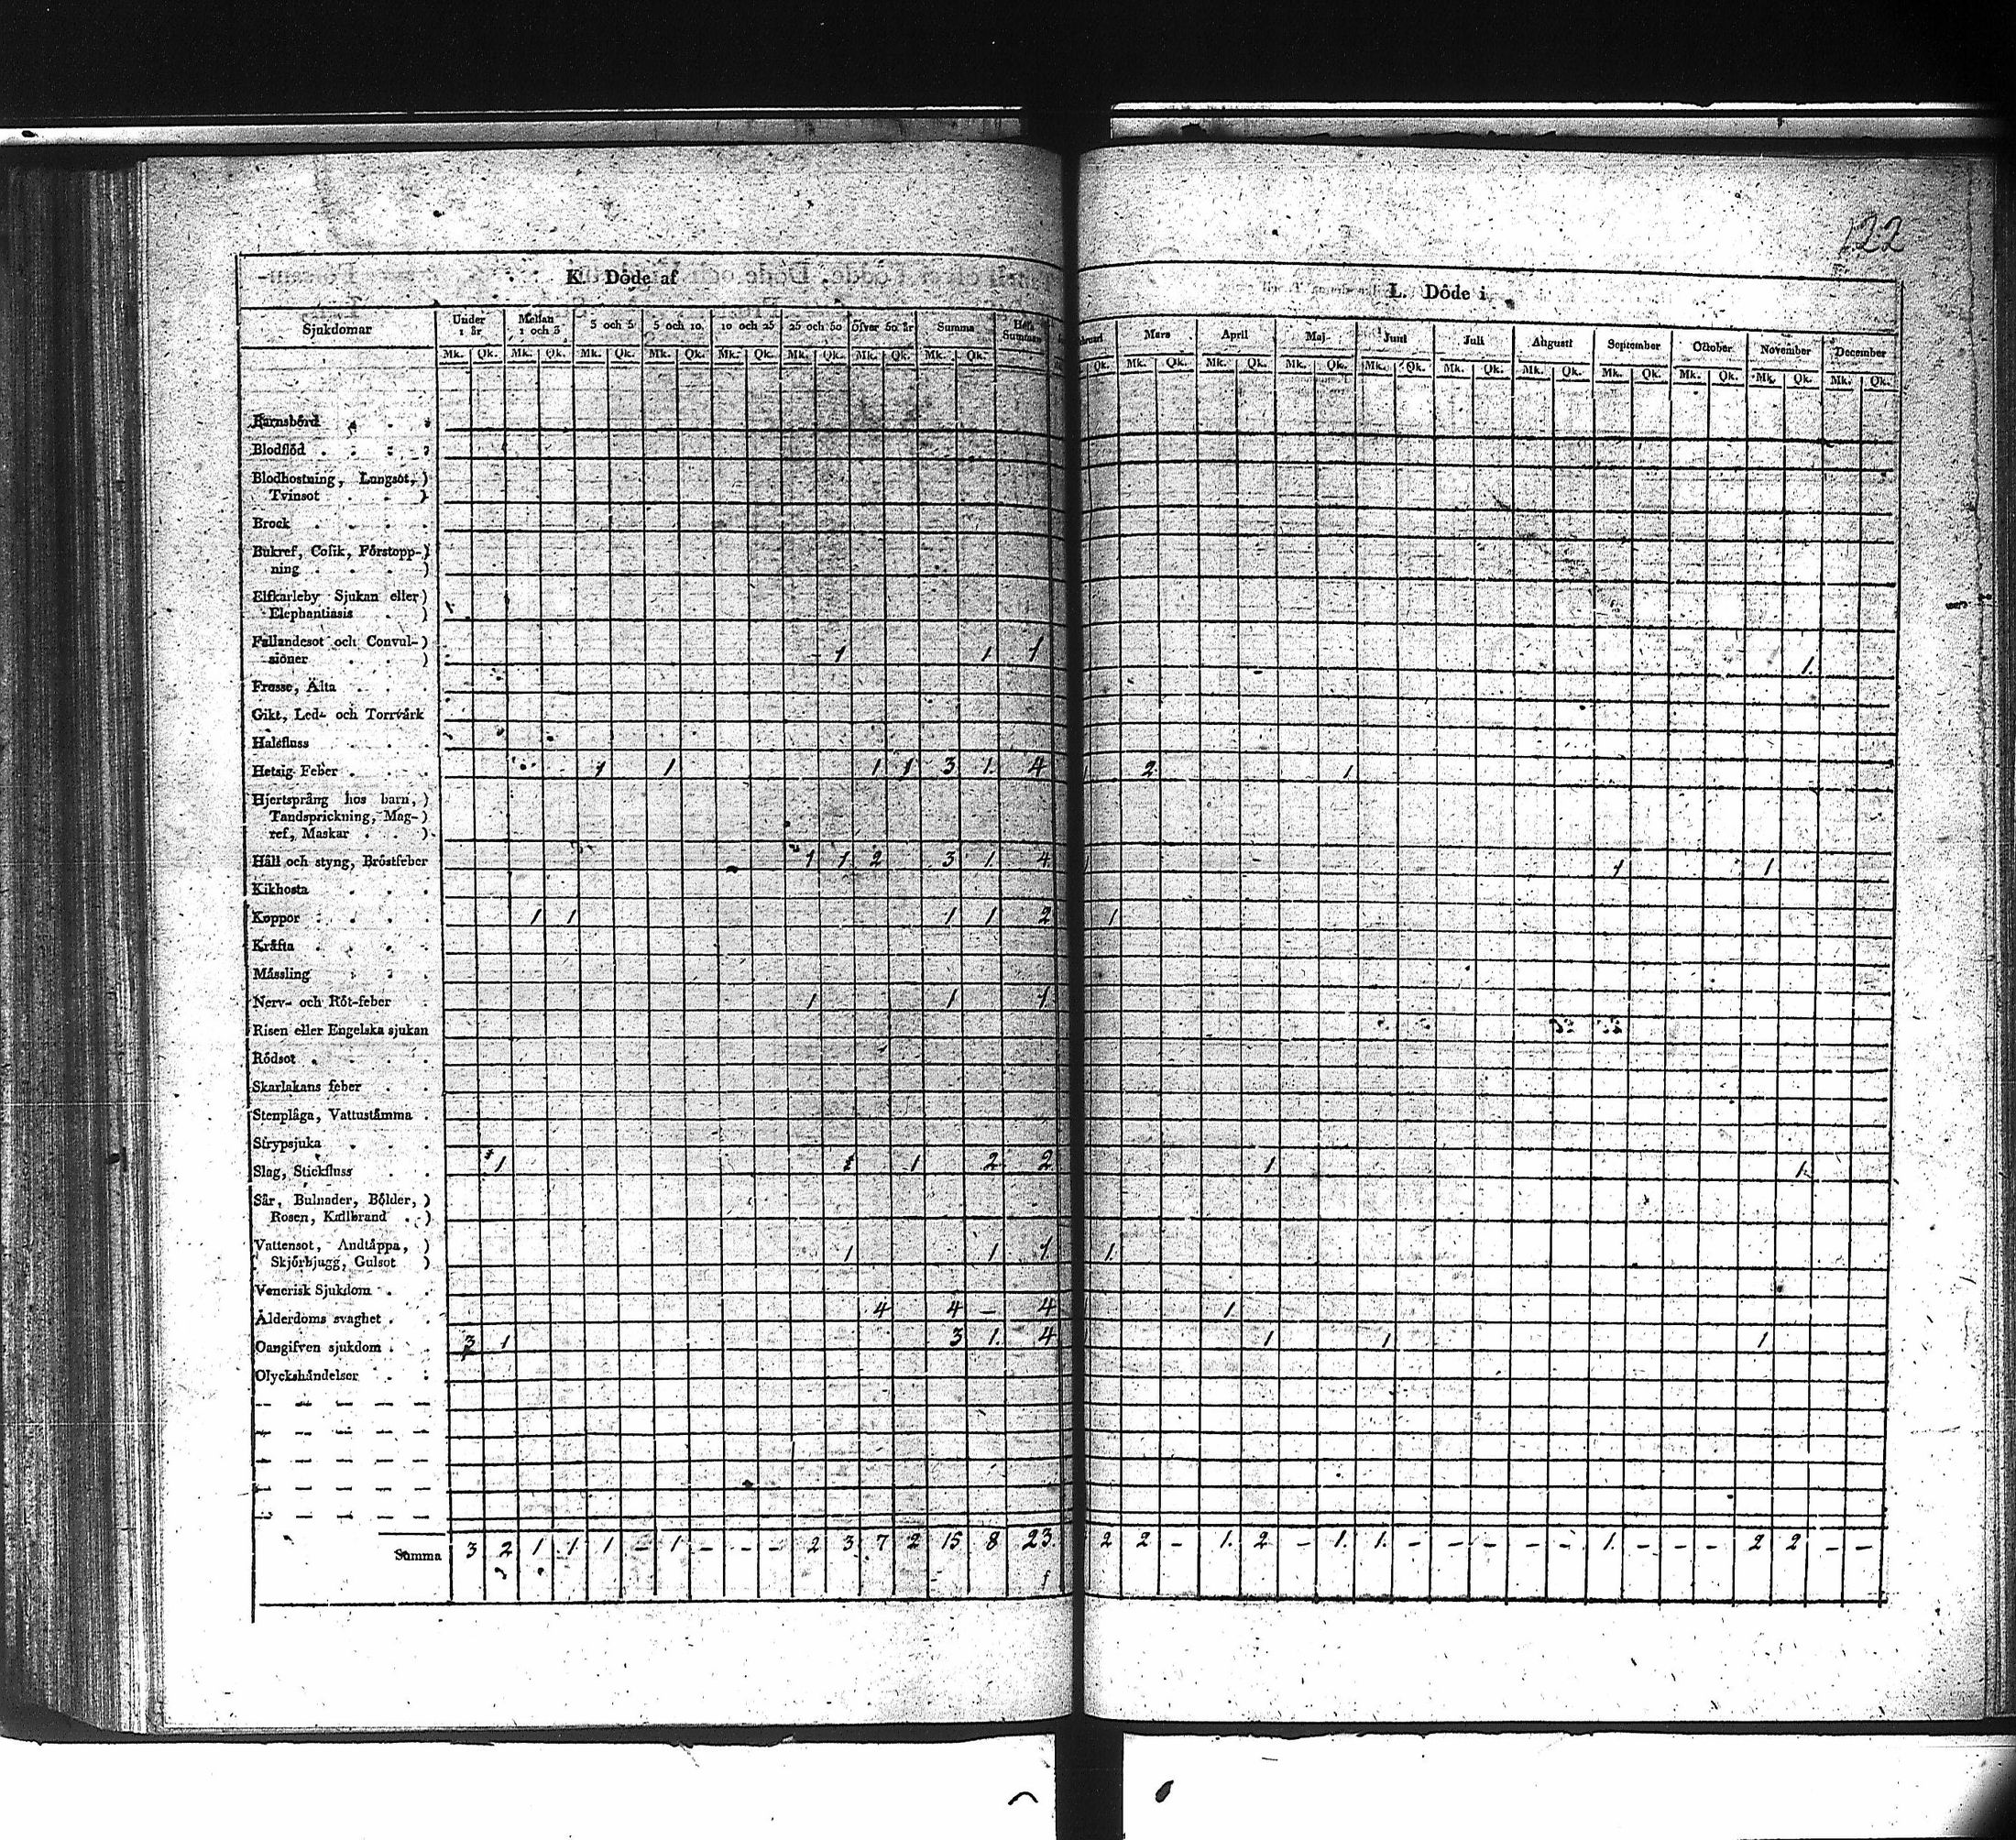 122
K. Döde af
L. Döde i
Sjukdomar Under 1 år Mellan 1 och 3 3 och 5 5 och 10. 10 och 25 25 och 50 öfver 50 år Summa Hela Summan
Mars April Maj Juni Juli Augusti September October November December
Mk. Qk. Mk. Qk. Mk. Qk. Mk. Qk. Mk. Qk. Mk. Qk. Mk. Qk. Mk. Qk.
Qk. Mk. Qk. Mk. Qk. Mk. Qk. Mk. Qk. Mk. Qk. Mk. Qk. Mk. Qk. Mk. Qk. Mk. Qk. Mk. Qk.
Barnsbörd
Blodflöd
Blodhostning, Lungsot, )
Tvinsot )
Brock
Bukref, Colik, Förstopp- )
ning )
Elfkarleby Sjukan eller )
Elephantiasis )
Fallandesot och Convul- )
sioner ) 1 1 1 1.
Frasse, Älta
Gikt, Led- och Torrvärk
Halsfluss
Hetsig Feber 1 1 1 1 3 1. 4 2 1
Hjertsprång hos barn, )
Tandsprickning, Mag- )
ref, Maskar )
Håll och styng, Bröstfeber 1 1 2 3 1. 4 1 1
Kikhosta
Koppor 1 1 1 1 2 1
Kräfta
Mässling
Nerv- och Röt-feber 1 1 1
Risen eller Engelska sjukan
Rödsot
Skarlakans feber
Stenplåga, Vattustämma
Strypsjuka
Slag, Stickfluss 1 1 2 2 1 1.
Sår, Bulnader, Bölder, )
Rosen, Kallbrand )
Vattensot, Andtäppa, )
Skjörbjugg, Gulsot ) 1 1 1 1.
Venerisk Sjukdom
Ålderdoms svaghet 4 4 — 4 1
Oangifven sjukdom 3 1 3 1. 4 1 1 1
Olyckshändelser
Summa 3 2 1 1 1 - 1 - - - 2 3 7 2 15 8 23. 2 2 - 1. 2 - 1. 1. - - - - - 1. - - - 2 2 - -